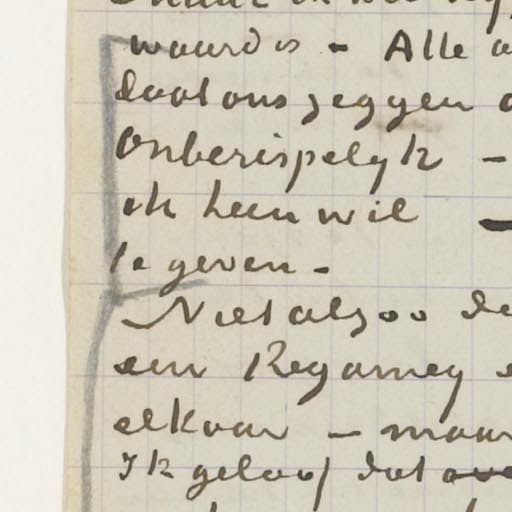 waard is - Alle
dat ons zeggen
Onberispelyk -
ik heen wil -
te geven. -
Niet alzoo de
een Regamey
elkaar - maar
Ik geloof dat